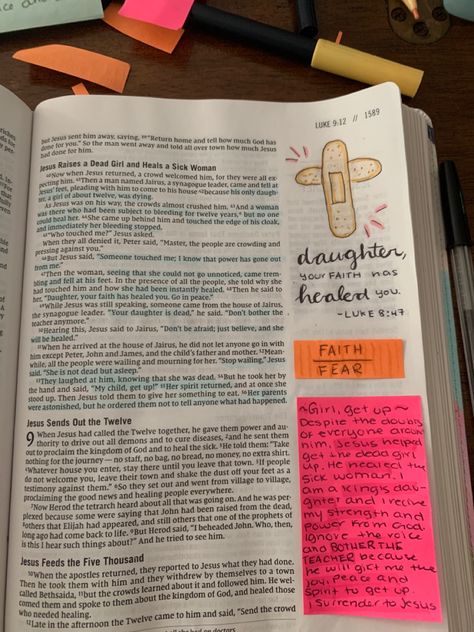 LUKE 9:12 // 1589
but Jesus sent him away, saying, 39"Return home and tell how much God has
done for you." So the man went away and told all over town how much Jesus
had done for him.
Jesus Raises a Dead Girl and Heals a Sick Woman
40Now when Jesus returned, a crowd welcomed him, for they were all ex-
pecting him. 41Then a man named Jairus, a synagogue leader, came and fell at
Jesus' feet, pleading with him to come to his house 42because his only daugh-
ter, a girl of about twelve, was dying.
As Jesus was on his way, the crowds almost crushed him. 43And a woman
was there who had been subject to bleeding for twelve years, but no one
could heal her. 44She came up behind him and touched the edge of his cloak,
and immediately her bleeding stopped.
45"Who touched me?" Jesus asked.
When they all denied it, Peter said, "Master, the people are crowding and
pressing against you."
46But Jesus said, "Someone touched me; I know that power has gone out
from me."
47Then the woman, seeing that she could not go unnoticed, came trem-
bling and fell at his feet. In the presence of all the people, she told why she
had touched him and how she had been instantly healed. 48Then he said to
her, "Daughter, your faith has healed you. Go in peace."
49While Jesus was still speaking, someone came from the house of Jairus,
the synagogue leader. "Your daughter is dead," he said. "Don't bother the
teacher anymore."
50Hearing this, Jesus said to Jairus, "Don't be afraid; just believe, and she
will be healed."
51When he arrived at the house of Jairus, he did not let anyone go in with
him except Peter, John and James, and the child's father and mother. 52Mean-
while, all the people were wailing and mourning for her. "Stop wailing," Jesus
said. "She is not dead but asleep."
53They laughed at him, knowing that she was dead. 54But he took her by
the hand and said, "My child, get up!" 55Her spirit returned, and at once she
stood up. Then Jesus told them to give her something to eat. 56Her parents
were astonished, but he ordered them not to tell anyone what had happened.
Jesus Sends Out the Twelve
9 When Jesus had called the Twelve together, he gave them power and au-
thority to drive out all demons and to cure diseases, 2and he sent them
out to proclaim the kingdom of God and to heal the sick. 3He told them: "Take
nothing for the journey—no staff, no bag, no bread, no money, no extra shirt.
4Whatever house you enter, stay there until you leave that town. 5If people
do not welcome you, leave their town and shake the dust off your feet as a
testimony against them." 6So they set out and went from village to village,
proclaiming the good news and healing people everywhere.
7Now Herod the tetrarch heard about all that was going on. And he was per-
plexed because some were saying that John had been raised from the dead,
8others that Elijah had appeared, and still others that one of the prophets of
long ago had come back to life. 9But Herod said, "I beheaded John. Who, then,
is this I hear such things about?" And he tried to see him.
Jesus Feeds the Five Thousand
10When the apostles returned, they reported to Jesus what they had done.
Then he took them with him and they withdrew by themselves to a town
called Bethsaida, 11but the crowds learned about it and followed him. He wel-
comed them and spoke to them about the kingdom of God, and healed those
who needed healing.
12Late in the afternoon the Twelve came to him and said, "Send the crowd
daughter,
YOUR FAITH HAS
healed YOU.
-LUKE 8:47
FAITH
FEAR
~Girl, get up~
Despite the doubts
of everyone around
him, Jesus helped
get the dead girl
up. He healed the
sick woman. I
am a King's dau-
ghter and I recive
my strength and
power from God.
Ignore the voice
and BOTHER THE
TEACHER because
he will gift me the
Joy, peace and
spirit to get up.
I surrender to Jesus